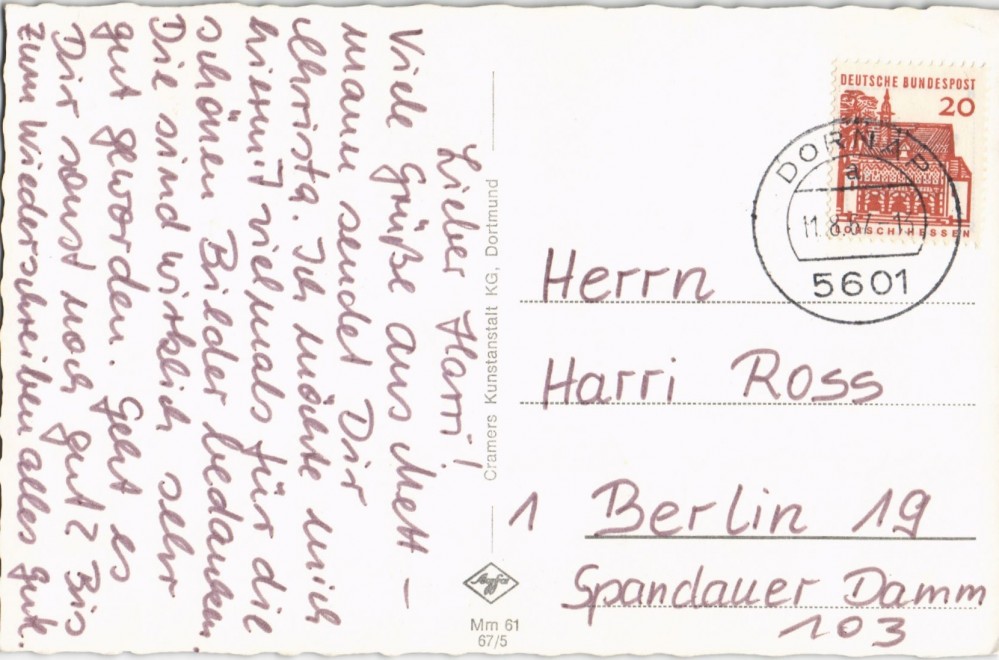 Lieber Harri!
Viele Grüße aus Mett-
mann sendet Dir
Christa. Ich möchte mich
hiermit vielmals für die
schönen Bilder bedanken.
Die sind wirklich sehr
gut geworden. Geht es
Dir sonst noch gut? Bis
zum Wiederschreiben alles Gute.
Cramers Kunstanstalt KG, Dortmund
Agfa
Mm 61
67/5
DEUTSCHE BUNDESPOST
20
LORSCH/HESSEN
DORNAP
a
11.8.67
5601
Herrn
Harri Ross
1 Berlin 19
Spandauer Damm
103